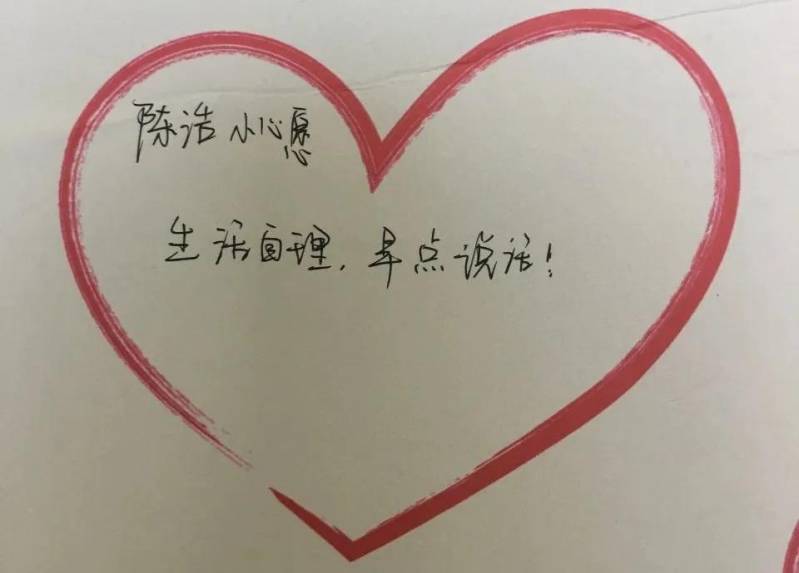 陈浩小心愿
生活自理，早点说话！